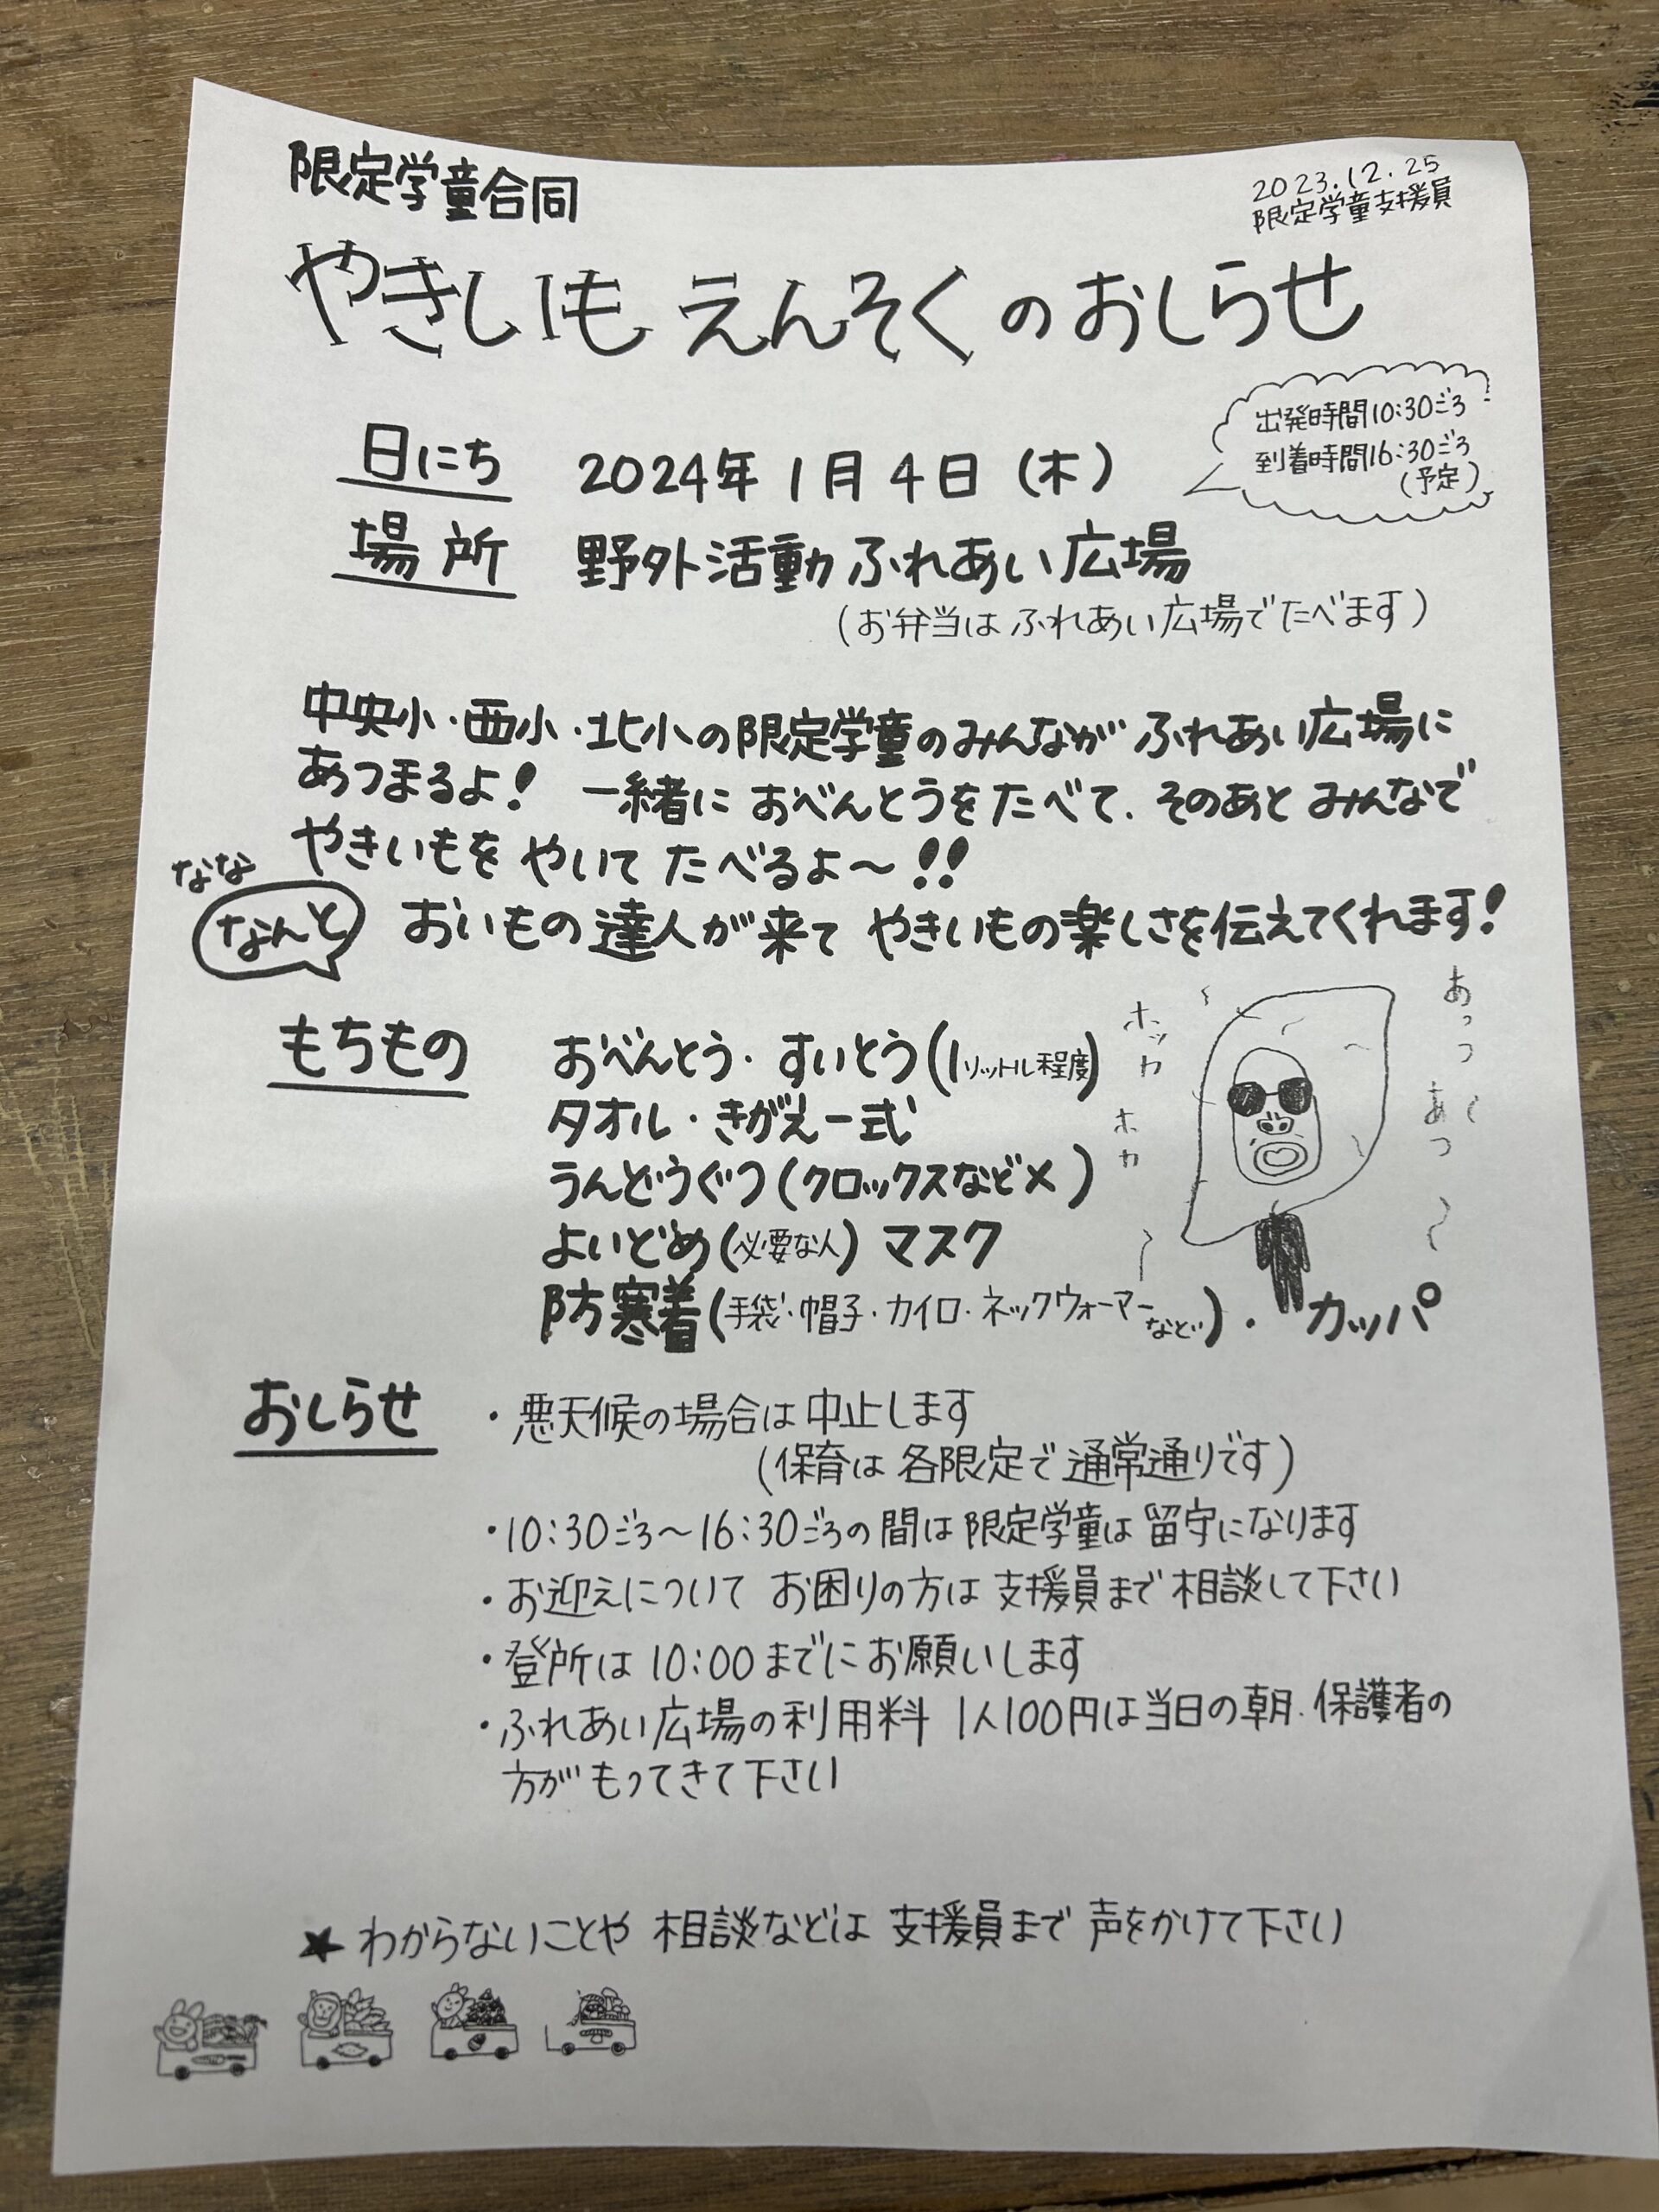 限定学童合同
2023.12.25
限定学童支援員
やきいも えんそく のおしらせ
出発時間10:30ごろ
到着時間16:30ごろ
(予定)
日にち 2024年 1月 4日 (木)
場所 野外活動 ふれあい広場
(お弁当は ふれあい広場でたべます)
中央小・西小・北小の限定学童のみんなが ふれあい広場に
あつまるよ! 一緒に おべんとうをたべて、そのあと みんなで
やきいもを やいて たべるよ〜!!
なな
なんと おいもの達人が来て やきいもの楽しさを伝えてくれます!
もちもの おべんとう・すいとう(1リットル程度)
タオル・きがえ一式
うんどうぐつ(クロックスなど×)
よいどめ(必要な人) マスク
防寒着(手袋・帽子・カイロ・ネックウォーマーなど)・ カッパ
ホッカ
ホカ
あっつ〜
あつ〜
おしらせ ・悪天候の場合は中止します
(保育は 各限定で通常通りです)
・10:30ごろ〜16:30ごろの間は限定学童は 留守になります
・お迎えについて お困りの方は 支援員まで相談して下さい
・登所は 10:00までにお願いします
・ふれあい広場の利用料 1人100円は当日の朝、保護者の
方が もってきて下さい
★ わからないことや 相談などは 支援員まで 声をかけて下さい